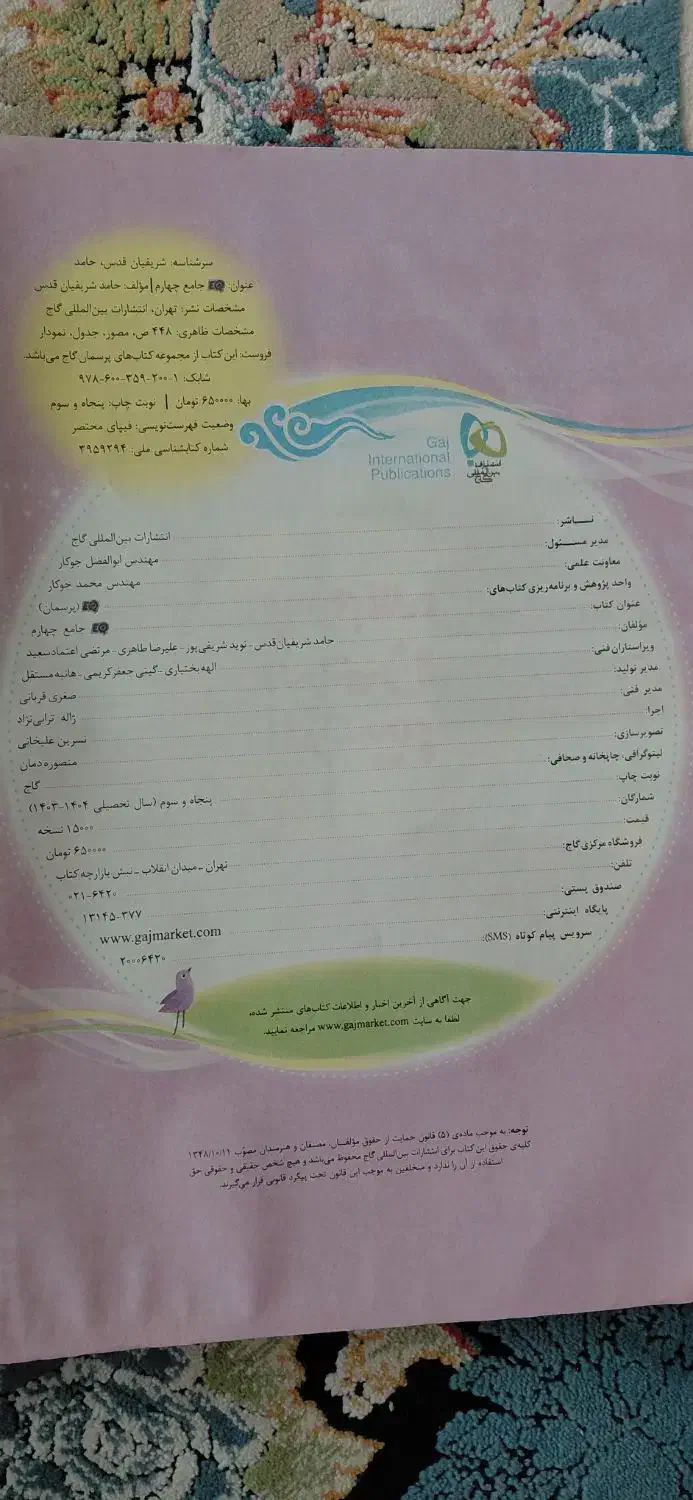 سرشناسه: شریفیان قدس، حامد
عنوان: EQ جامع چهارم|مؤلف: حامد شریفیان قدس
مشخصات نشر: تهران، انتشارات بین‌المللی گاج
مشخصات ظاهری: ۴۴۸ ص، مصور، جدول، نمودار
فروست: این کتاب از مجموعه کتاب‌های پرسمان گاج می‌باشد.
شابک: ۱-۲۰۰-۳۵۹-۶۰۰-۹۷۸
بها: ۶۵۰۰۰۰ تومان | نوبت چاپ: پنجاه و سوم
وضعیت فهرست‌نویسی: فیپای مختصر
شماره کتابشناسی ملی: ۳۹۵۹۲۹۴
Gaj
International
Publications
انتشارات
بین‌المللی
گاج
نـــاشر: انتشارات بین‌المللی گاج
مدیر مســـئول: مهندس ابوالفضل جوکار
معاونت علمی: مهندس محمد جوکار
واحد پژوهش و برنامه‌ریزی کتاب‌های: EQ (پرسمان)
عنوان کتاب: EQ جامع چهارم
مؤلفان: حامد شریفیان‌قدس - نوید شریفی‌پور - علیرضا طاهری - مرتضی اعتمادسعید
ویراستاران فنی: الهه بختیاری - گیتی جعفرکریمی - هانیه مستقل
مدیر تولید: صغری قربانی
مدیر فنی: ژاله ترابی‌نژاد
اجرا: نسرین علیخانی
تصویرسازی: منصوره دمان
لیتوگرافی، چاپخانه و صحافی: گاج
نوبت چاپ: پنجاه و سوم (سال تحصیلی ۱۴۰۴-۱۴۰۳)
شمارگان: ۱۵۰۰۰ نسخه
قیمت: ۶۵۰۰۰۰ تومان
فروشگاه مرکزی گاج: تهران - میدان انقلاب - نبش بازارچه کتاب
تلفن: ۰۲۱-۶۴۲۰
صندوق پستی: ۱۳۱۴۵-۳۷۷
پایگاه اینترنتی: www.gajmarket.com
سرویس پیام کوتاه (SMS): ۲۰۰۰۶۴۲۰
جهت آگاهی از آخرین اخبار و اطلاعات کتاب‌های منتشر شده،
لطفا به سایت www.gajmarket.com مراجعه نمایید.
توجه: به موجب ماده‌ی (۵) قانون حمایت از حقوق مؤلفـان، مصنفان و هنرمندان مصوّب ۱۳۴۸/۱۰/۱۱
کلیه‌ی حقوق این کتاب برای انتشارات بین‌المللی گاج محفوظ می‌باشد و هیچ شخص حقیقی و حقوقی حق
استفاده از آن را ندارد و متخلفین به موجب این قانون تحت پیگرد قانونی قرار می‌گیرند.